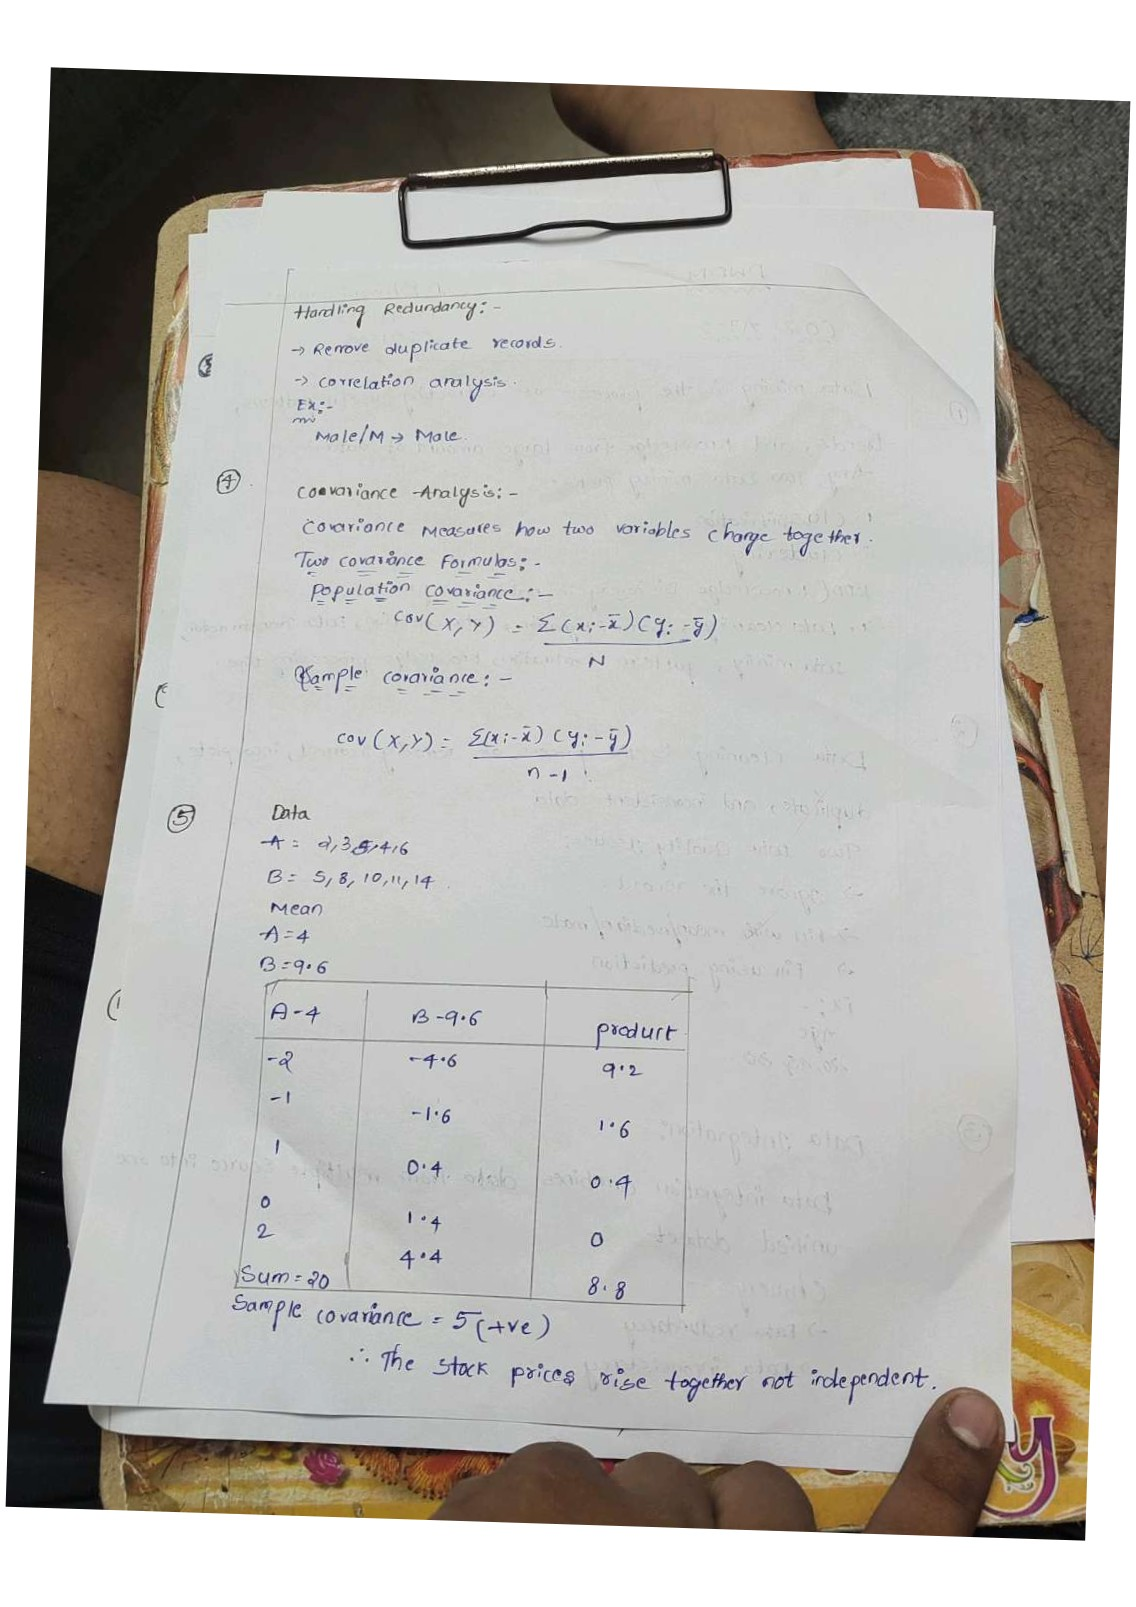 Handling Redundancy:-
→ Remove duplicate records.
→ correlation analysis.
Ex:-
Male/M → Male.
④ Covariance Analysis:-
Covariance Measures how two variables change together.
Two covariance Formulas:-
Population covariance:-
cov(X,Y) = Σ(xi-x̄)(yi-ȳ)
N
Sample covariance:-
cov(X,Y) = Σ(xi-x̄)(yi-ȳ)
n-1
⑤ Data
A = 2,3,5,4,6
B = 5,8,10,11,14
Mean
A=4
B=9.6
A-4 B-9.6 product
-2 -4.6 9.2
-1 -1.6 1.6
1 0.4 0.4
0 1.4 0
2 4.4 8.8
Sum=20
Sample covariance = 5(+ve)
∴ The stock prices rise together not independent.